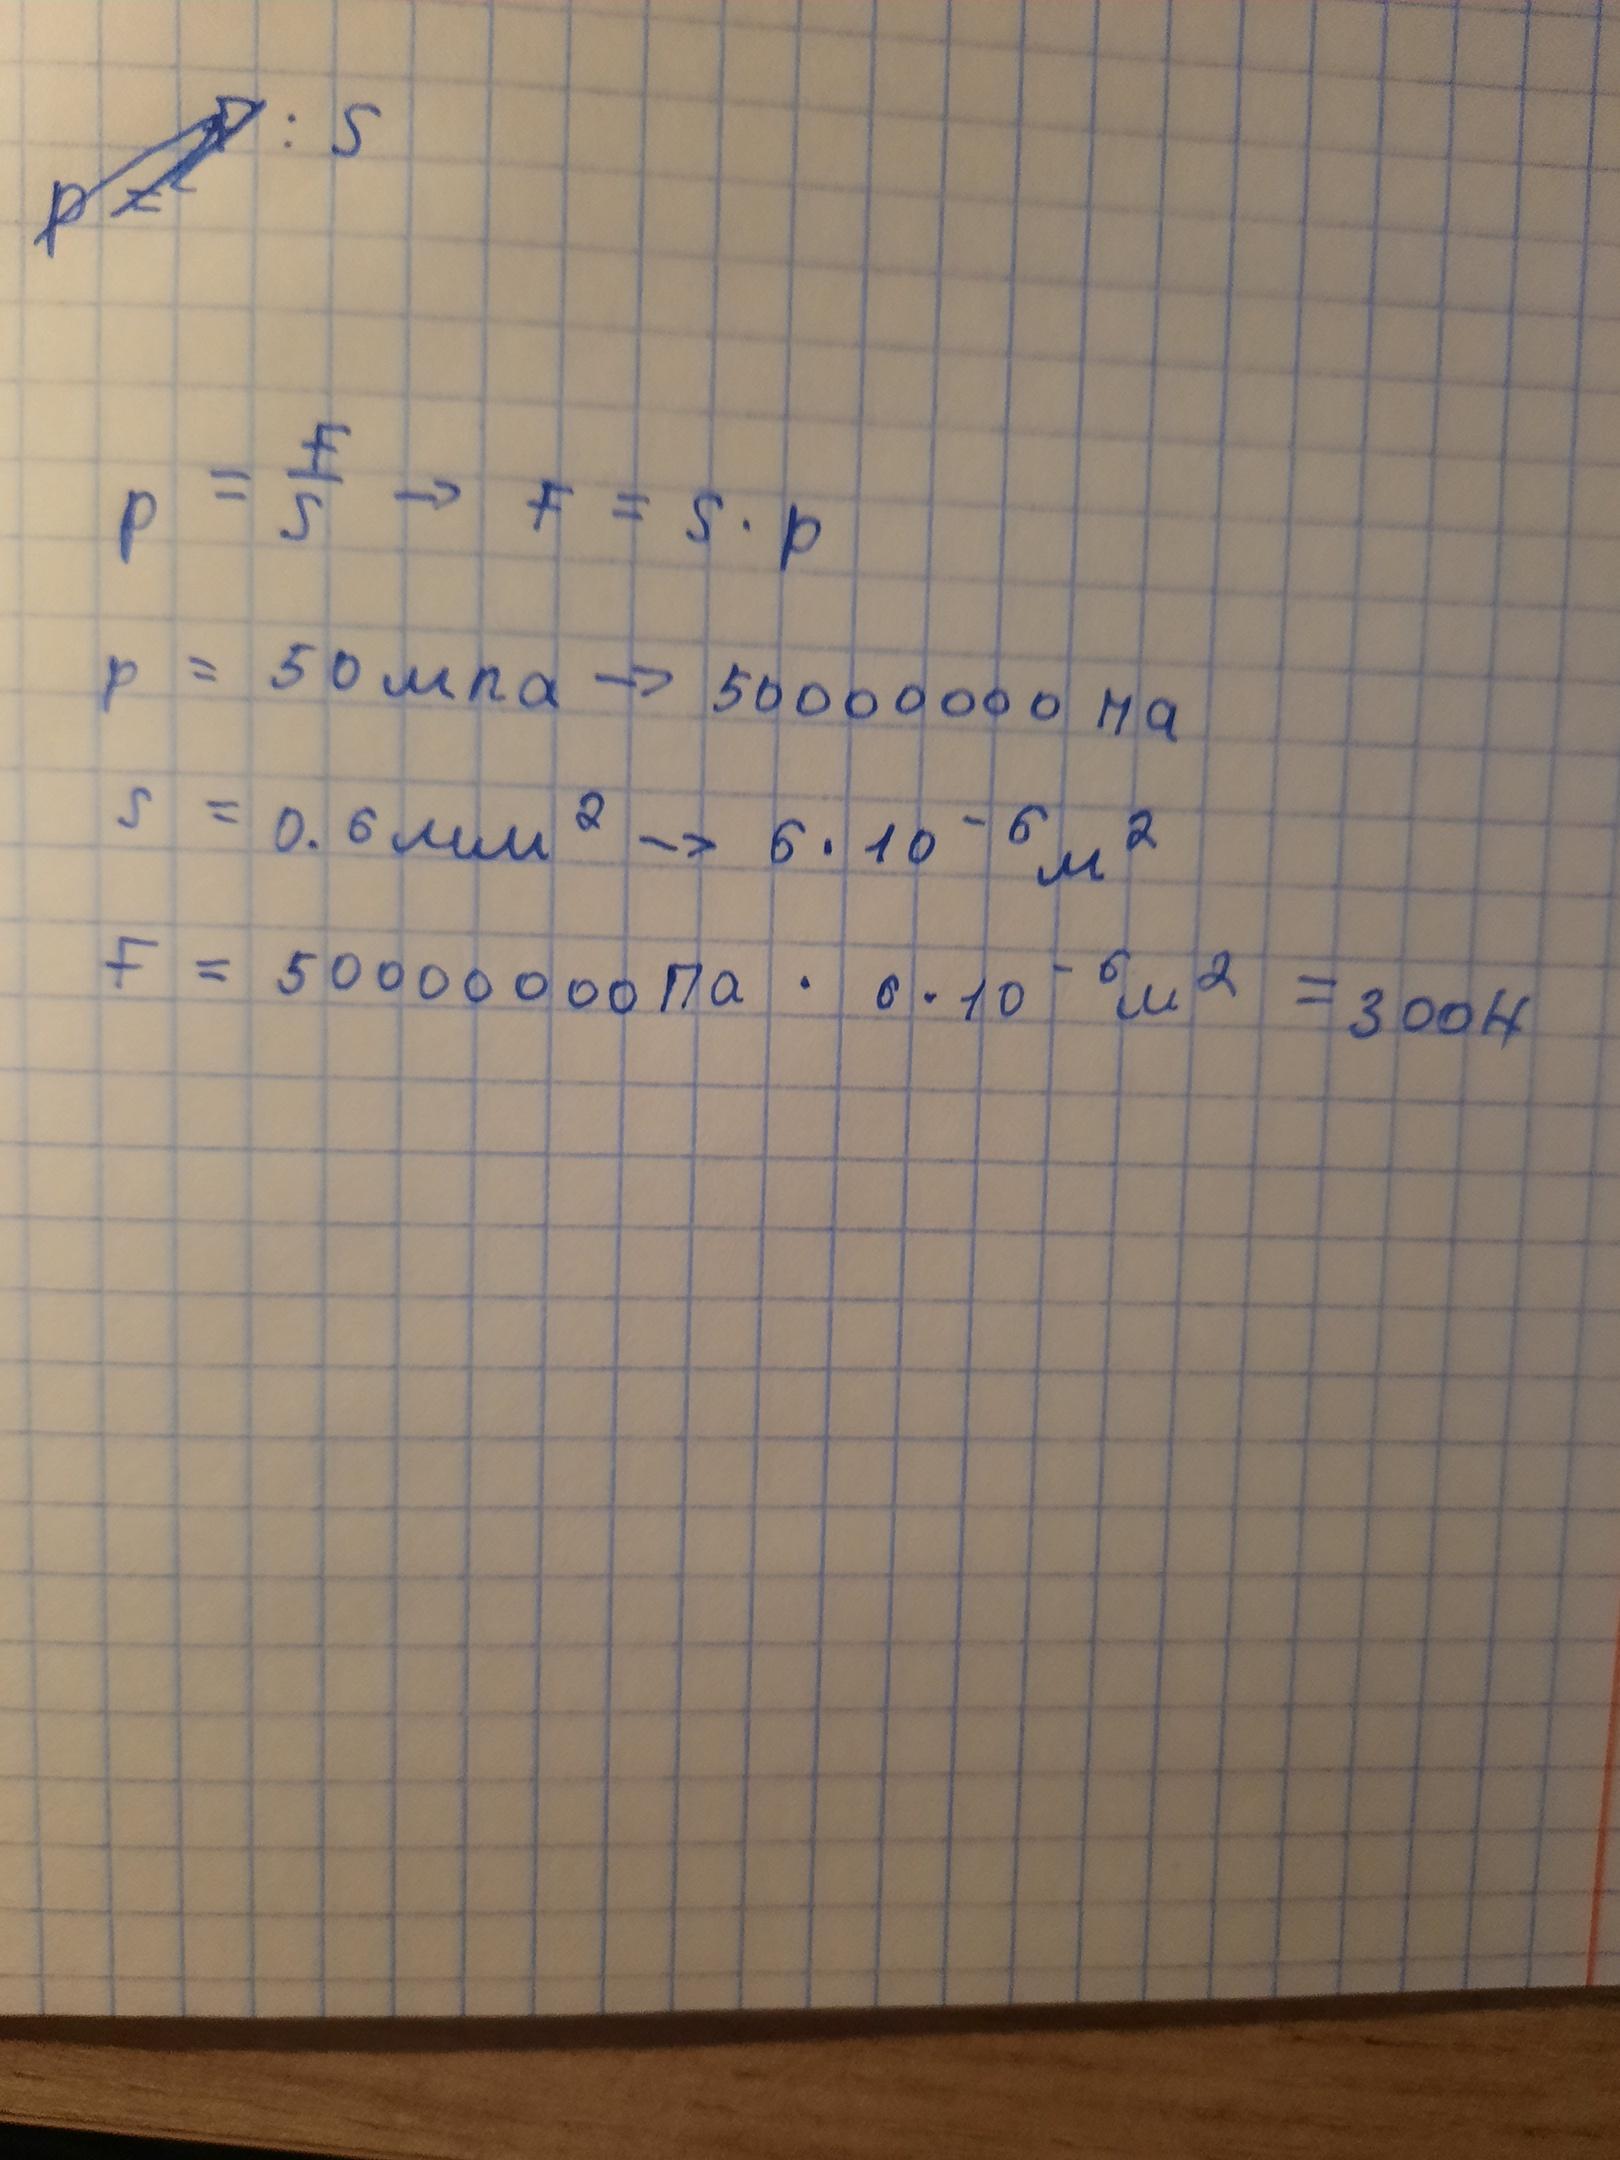 : S
p =
p = F/S → F = S · p
p = 50 мпа → 50000000 Па
S = 0.6 мм² → 6 · 10⁻⁶ м²
F = 50000000 Па · 6 · 10⁻⁶ м² = 300 Н